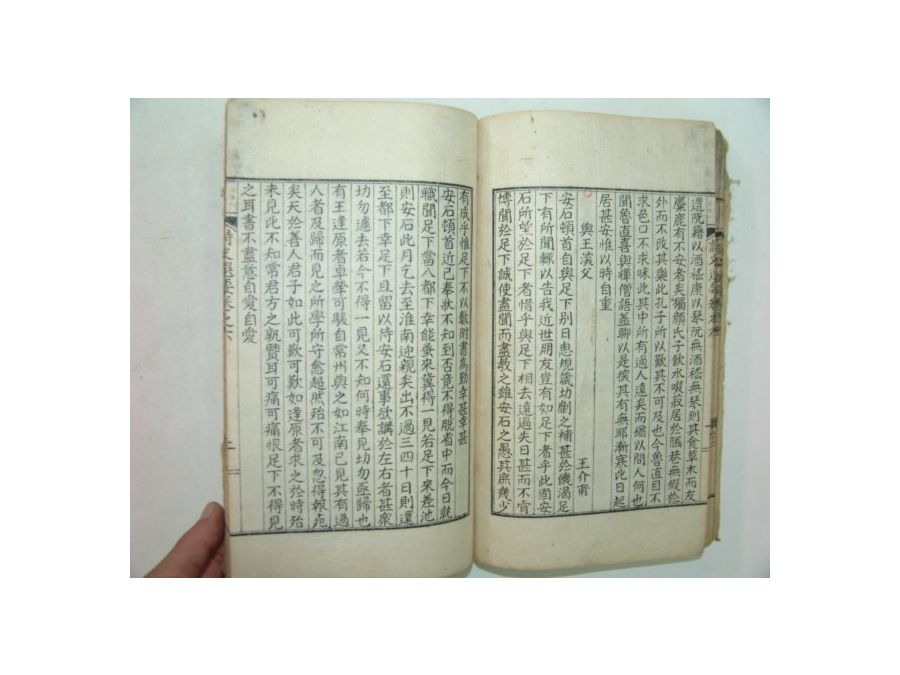 遺阮籍以酒嵇康以琴阮無酒嵇無琴則其食草木而友
麋鹿有不安者矣獨顏氏子飲水啜菽居於陋巷無假於
外而不改其樂此孔子所以歎其不可及也今魯直目不
求色口不求味此其中所有過人遠矣而猶以問人何也
聞魯直喜與禪僧語蓋聊以是探其有無耶漸寒比日起
居甚安惟以時自重
與王深父
王介甫
安石頓首自與足下別日思規箴切劘之補甚於饑渴足
下有所聞輒以告我近世朋友豈有如足下者乎此固安
石所望於足下者惜乎與足下相去遠過失日甚而不宜
博聞於足下誠使盡聞而盡教之雖安石之愚其庶幾少
有成乎惟足下不以數附書為勤幸甚幸甚
安石頓首近已奉狀不知到否竟不得脫省中而今日就
職聞足下當入都下幸能蚤來冀得一見若足下來差池
則安石此月乞去至淮南迎親矣出不過三四十日則還
至都下幸足下且留以待安石還事欲講於左右者甚衆
切勿遽去若今不得一見又不知何時奉見切勿亟歸也
有王逢原者卓犖可駭自常州與之如江南已見其有過
人者及歸而見之所學所守愈超然殆不可及忽得報死
矣天於善人君子如此可歎可歎如逢原者求之於時殆
未見比不知常君方之孰賢耳可痛可痛恨足下不得見
之耳書不盡意自愛自愛